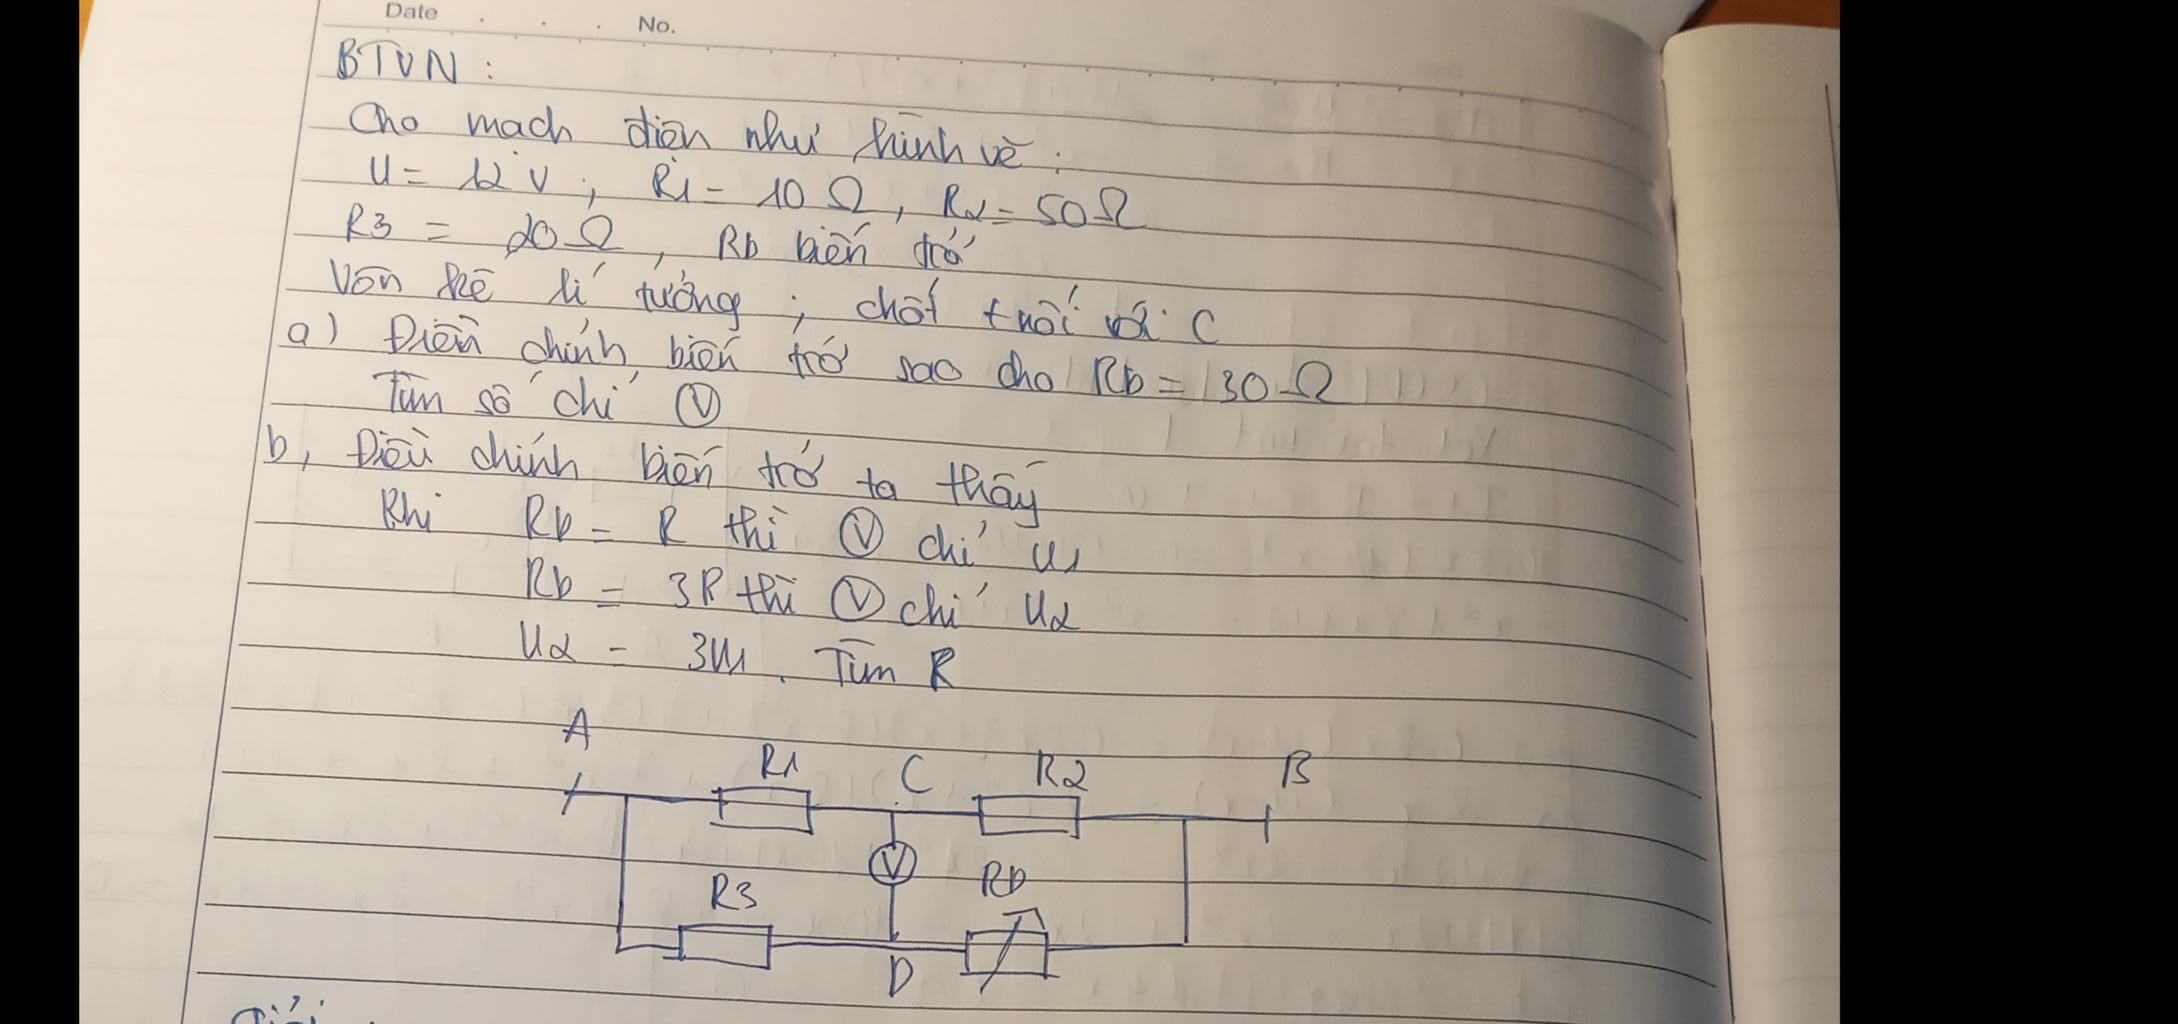 Date . . . No.
BTVN :
Cho mạch điện như hình vẽ :
U = 12 V ; R1 = 10 Ω, R2 = 50 Ω
R3 = 20 Ω, Rb biến trở
Vôn kế lí tưởng ; chốt + nối với C
a) Điều chỉnh biến trở sao cho Rb = 30 Ω
Tìm số chỉ V
b, Điều chỉnh biến trở ta thấy
Khi Rb = R thì V chỉ U1
Rb = 3R thì V chỉ U2
U2 = 3U1. Tìm R
A
R1 C R2 B
V
R3 Rb
D
Giải